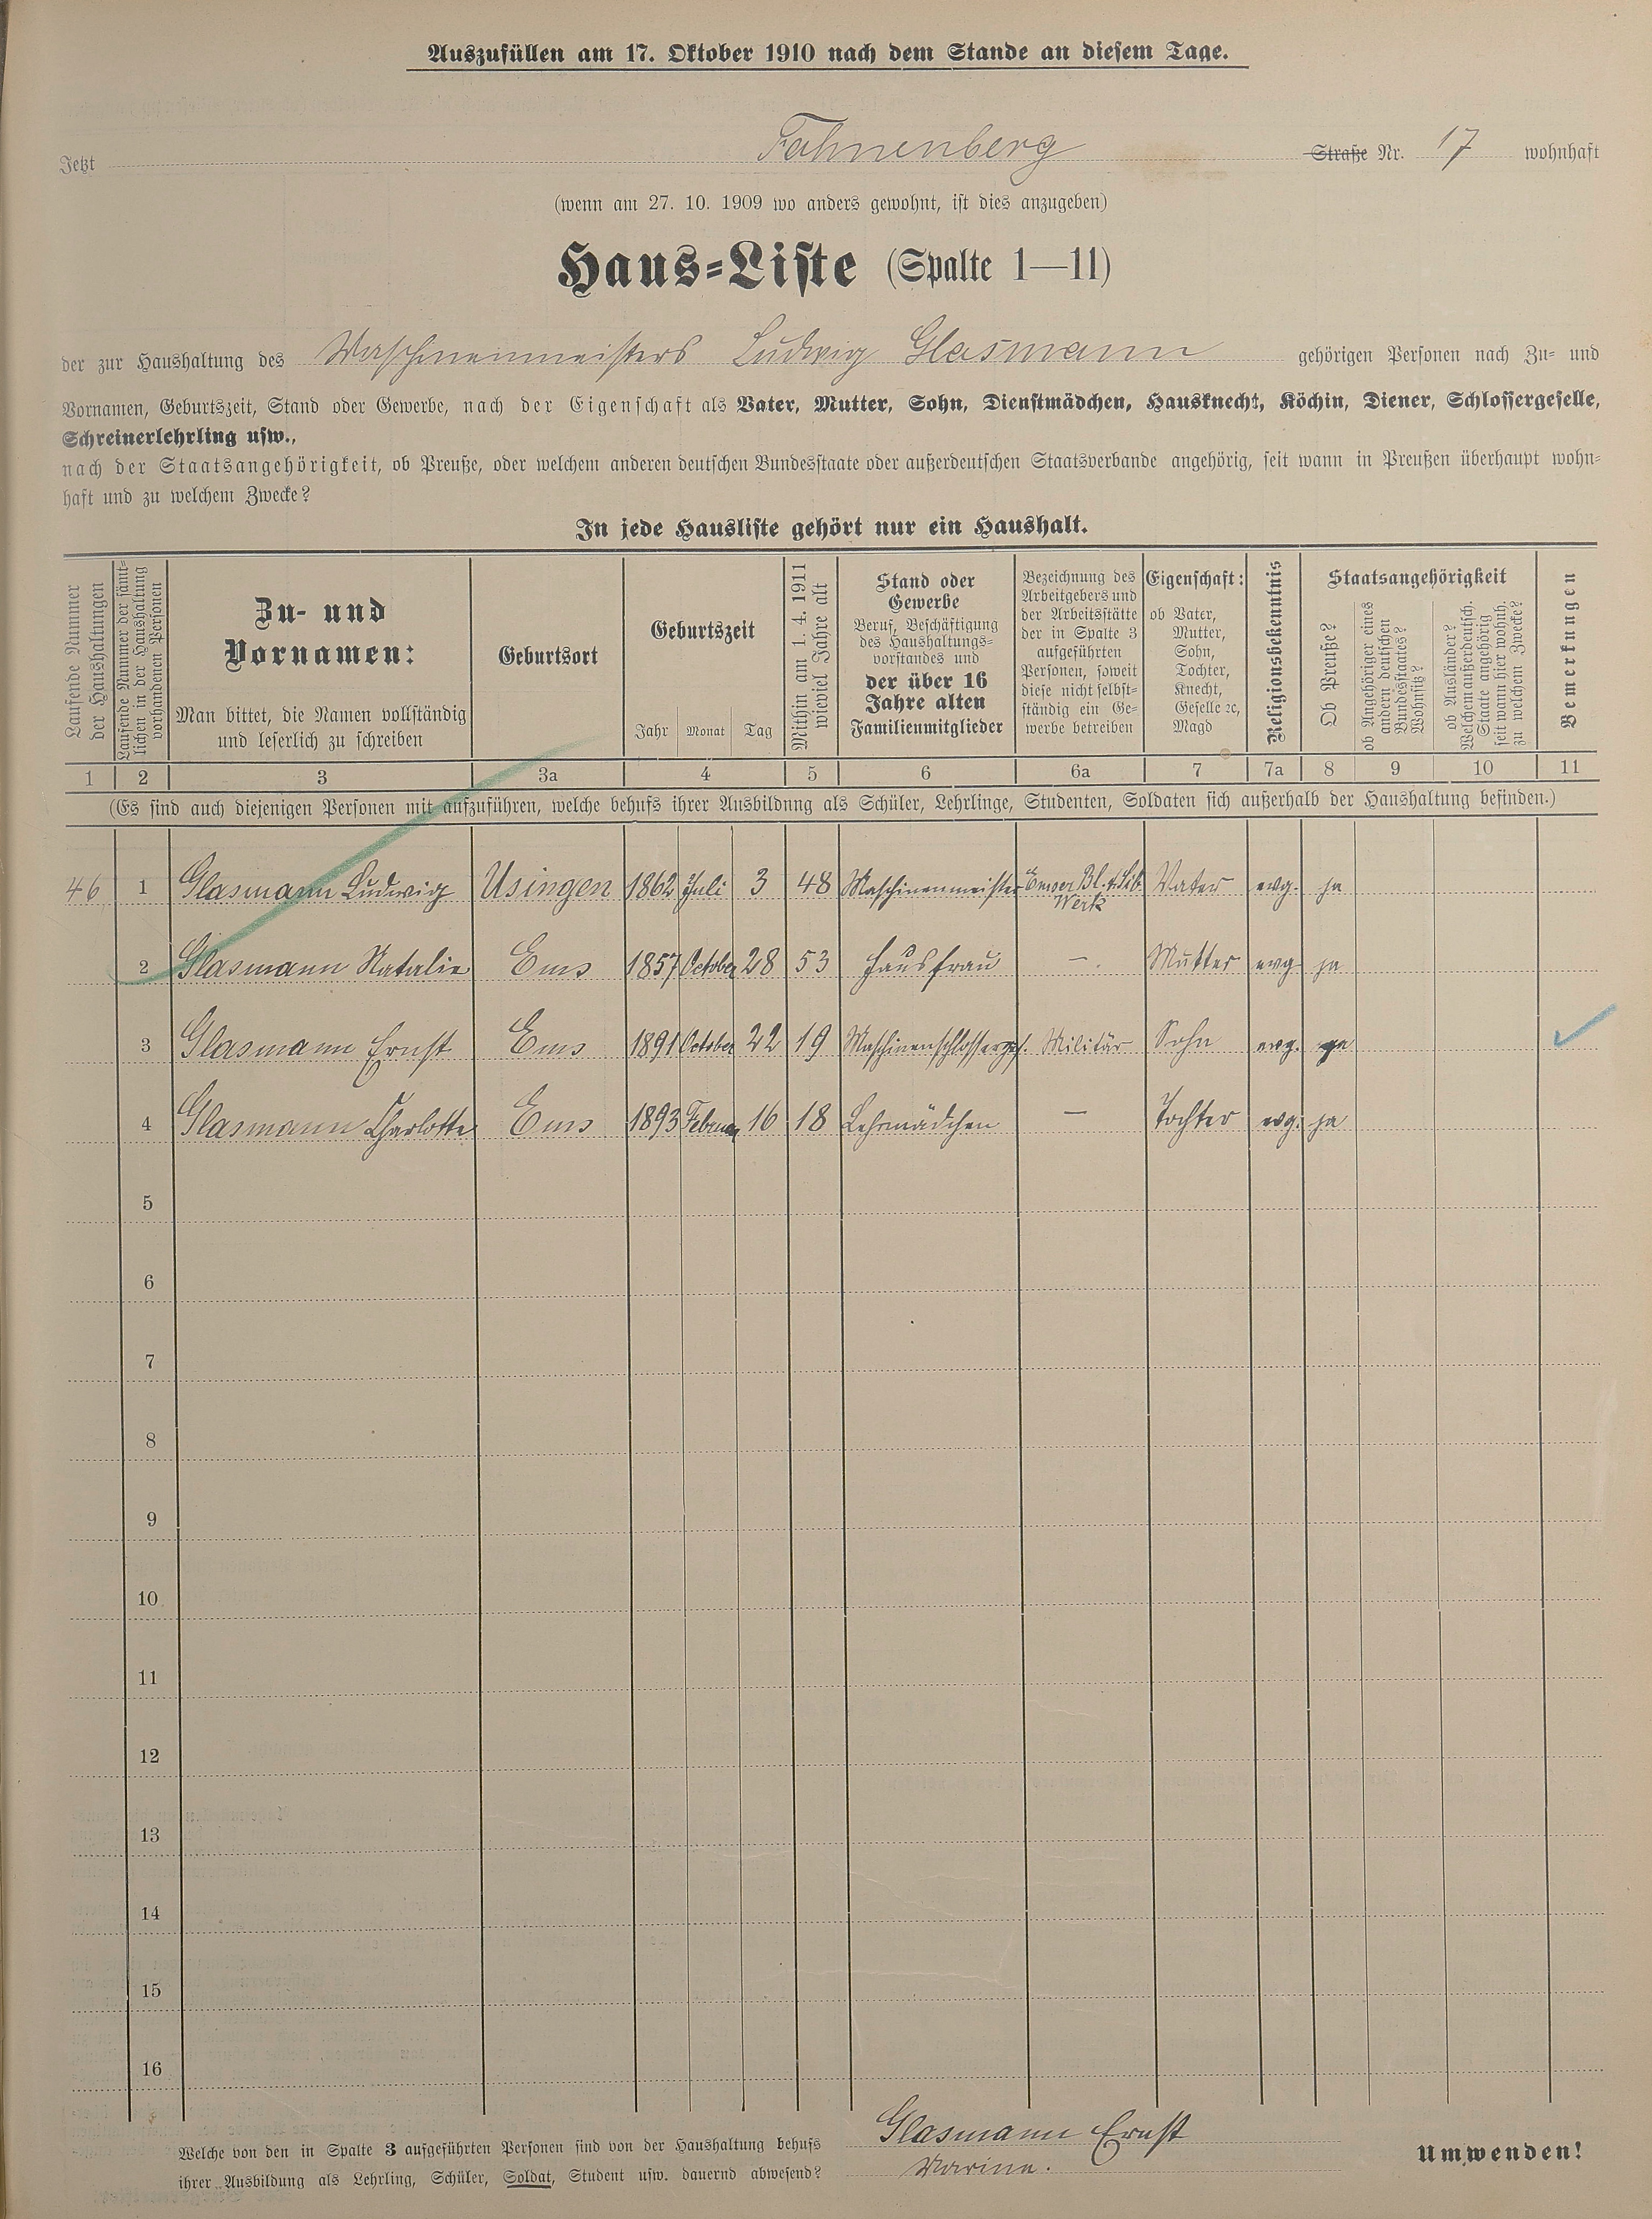 Auszufüllen am 17. Oktober 1910 nach dem Stande an diesem Tage.
Jetzt Fahnenberg Straße Nr. 17 wohnhaft
(wenn am 27. 10. 1909 wo anders gewohnt, ist dies anzugeben)
Haus-Liste (Spalte 1—11)
der zur Haushaltung des Maschinenmeisters Ludwig Glasmann gehörigen Personen nach Zu- und
Vornamen, Geburtszeit, Stand oder Gewerbe, nach der Eigenschaft als Vater, Mutter, Sohn, Dienstmädchen, Hausknecht, Köchin, Diener, Schlossergeselle,
Schreinerlehrling usw.,
nach der Staatsangehörigkeit, ob Preuße, oder welchem anderen deutschen Bundesstaate oder außerdeutschen Staatsverbande angehörig, seit wann in Preußen überhaupt wohn-
haft und zu welchem Zwecke?
In jede Hausliste gehört nur ein Haushalt.
Laufende Nummer
der Haushaltungen
Laufende Nummer der sämt-
lichen in der Haushaltung
vorhandenen Personen
Zu- und
Vornamen:
Man bittet, die Namen vollständig
und leserlich zu schreiben
Geburtsort
Geburtszeit
Jahr Monat Tag
Mithin am 1. 4. 1911
wieviel Jahre alt
Stand oder
Gewerbe
Beruf, Beschäftigung
des Haushaltungs-
vorstandes und
der über 16
Jahre alten
Familienmitglieder
Bezeichnung des
Arbeitgebers und
der Arbeitsstätte
der in Spalte 3
aufgeführten
Personen, soweit
diese nicht selbst-
ständig ein Ge-
werbe betreiben
Eigenschaft:
ob Vater,
Mutter,
Sohn,
Tochter,
Knecht,
Geselle ꝛc,
Magd
Religionsbekenntnis
Staatsangehörigkeit
Ob Preuße?
ob Angehöriger eines
andern deutschen
Bundesstaates?
Wohnsitz?
ob Ausländer?
Welchem außerdeutsch.
Staate angehörig
seit wann hier wohnh.
zu welchem Zwecke?
Bemerkungen
1 2 3 3a 4 5 6 6a 7 7a 8 9 10 11
(Es sind auch diejenigen Personen mit aufzuführen, welche behufs ihrer Ausbildung als Schüler, Lehrlinge, Studenten, Soldaten sich außerhalb der Haushaltung befinden.)
46 1 Glasmann Ludwig Usingen 1862 Juli 3 48 Maschinenmeister Emser Bl. Vater evg. ja
Werk
2 Glasmann Natalie Ems 1857 October 28 53 Hausfrau — Mutter evg ja
3 Glasmann Ernst Ems 1891 October 22 19 Maschinenschlosserges. Militär Sohn evg. ja
4 Glasmann Charlotte Ems 1893 Februar 16 18 Lehrmädchen — Tochter evg. ja
5
6
7
8
9
10
11
12
13
14
15
16
Welche von den in Spalte 3 aufgeführten Personen sind von der Haushaltung behufs Glasmann Ernst
ihrer Ausbildung als Lehrling, Schüler, Soldat, Student usw. dauernd abwesend? Marine.
Umwenden!